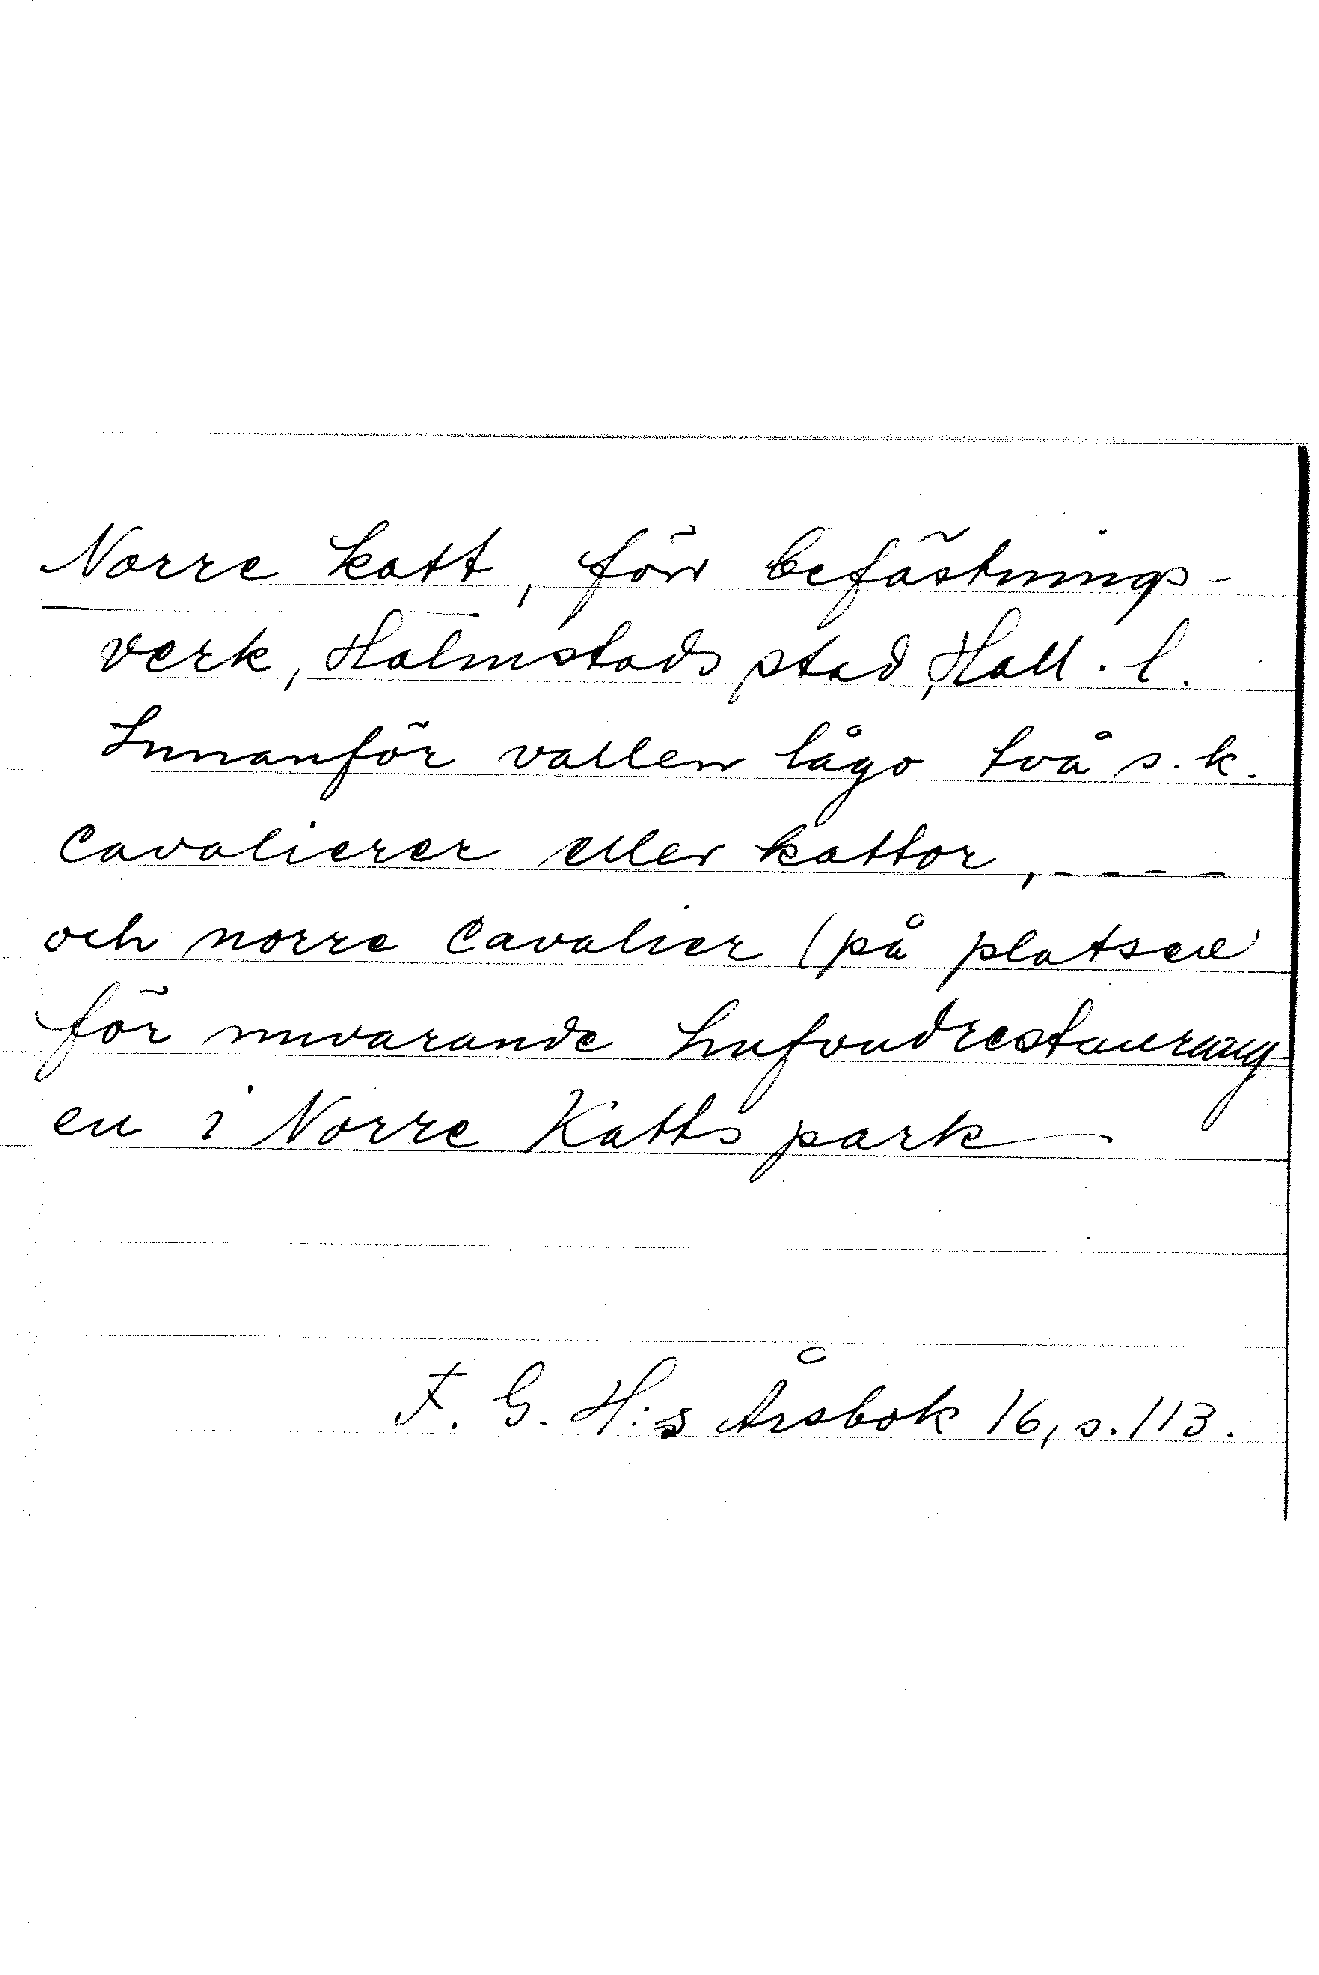 Norre katt, förr befästnings-
verk, Halmstads stad, Hall. l.
Innanför vallen lågo två s.k.
Cavalierer eller kattor, - - - -
och norre Cavalier (på platsen
för nuvarande restaurang-
en i Norre Katts park
F. G. H:s Årsbok 16, s. 113.